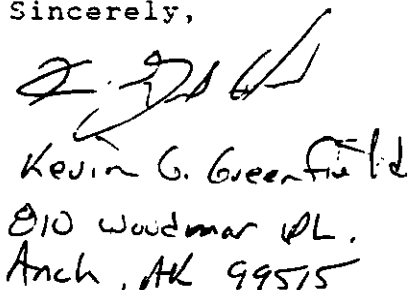 Sincerely,
Kevin G. Greenfield
810 Woodmar PL.
Anch, AK 99515